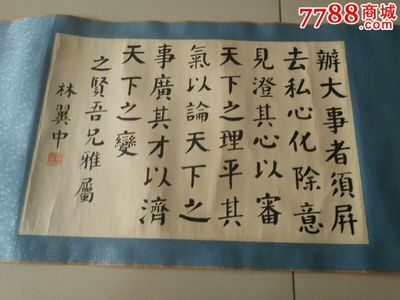 7788商城
辦大事者須屏
去私心化除意
見澄其心以審
天下之理平其
氣以論天下之
事廣其才以濟
天下之變
之賢吾兄雅屬
林翼中